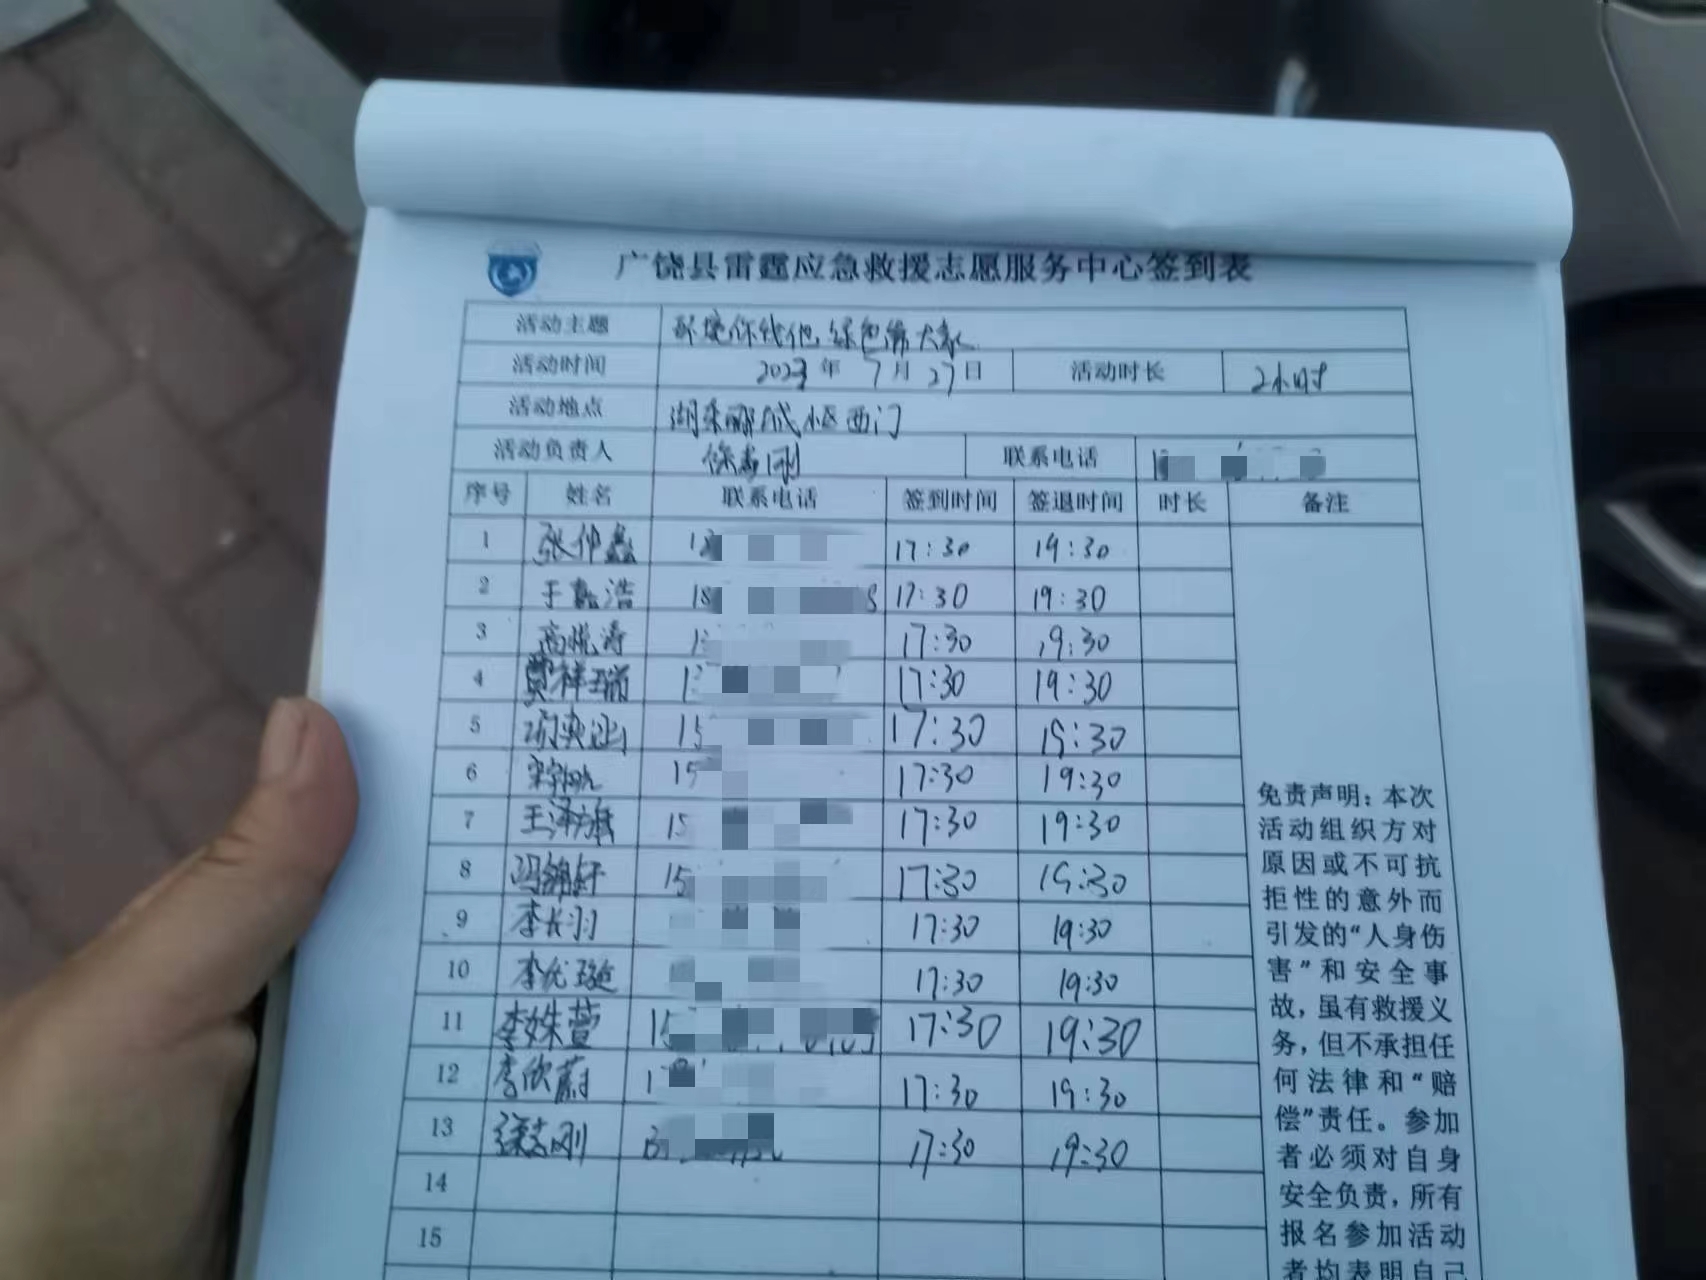 广饶县雷霆应急救援志愿服务中心签到表
活动主题 环境你我他 绿色 大家
活动时间 2023年7月27日 活动时长 2小时
活动地点 湖 郦城小区西门
活动负责人 徐志刚 联系电话
序号 姓名 联系电话 签到时间 签退时间 时长 备注
1 张仲鑫 17:30 19:30
2 于嘉浩 18 17:30 19:30
3 高悦涛 17:30 19:30
4 贾祥瑞 17:30 19:30
5 15 17:30 19:30
6 15 17:30 19:30
7 王泽 15 17:30 19:30
8 冯锦轩 15 17:30 19:30
9 李长羽 17:30 19:30
10 李优璇 17:30 19:30
11 李姝萱 15 17:30 19:30
12 李欣蔚 17:30 19:30
13 徐志刚 17:30 19:30
14
15
免责声明：本次
活动组织方对
原因或不可抗
拒性的意外而
引发的“人身伤
害”和安全事
故，虽有救援义
务，但不承担任
何法律和“赔
偿”责任。参加
者必须对自身
安全负责，所有
报名参加活动
者均表明自己